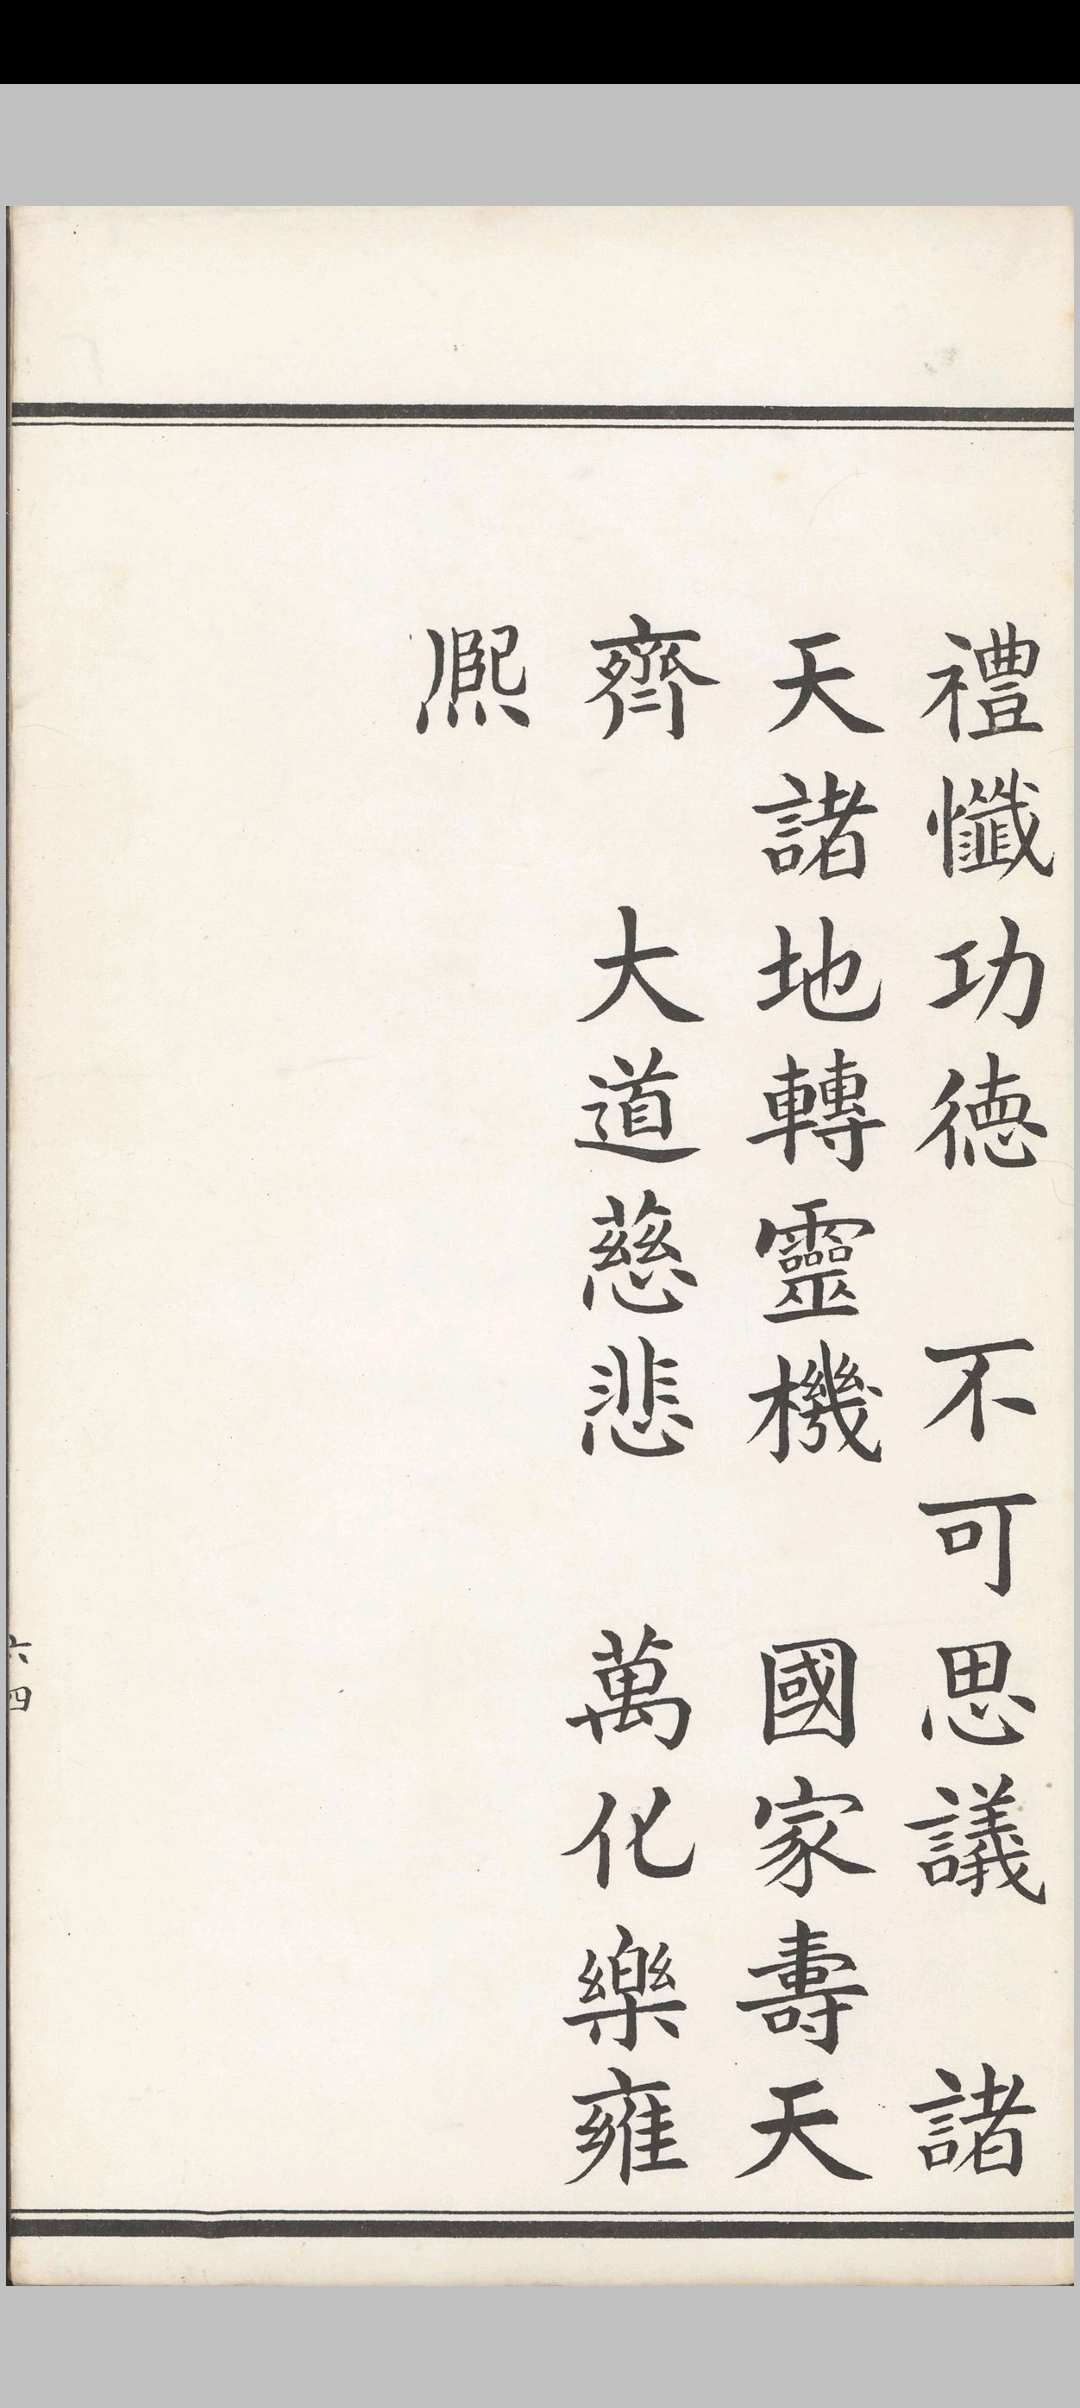 禮懺功德　不可思議　諸
天諸地轉靈機　國家壽天
齊　大道慈悲　萬化樂雍
熈
六四